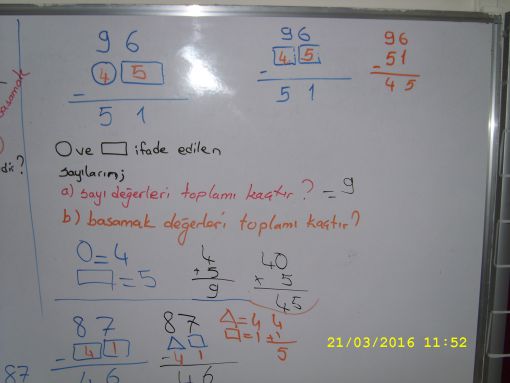 96
45
-
51
96
45
-
51
96
-51
45
basamak
dir?
○ ve □ ifade edilen
sayıların;
a) sayı değerleri toplamı kaçtır? = 9
b) basamak değerleri toplamı kaçtır?
○=4
□=5
4
+5
9
40
+ 5
45
87
-41
46
87
△□
-41
46
△=4
□=1
4
+1
5
87
21/03/2016 11:52